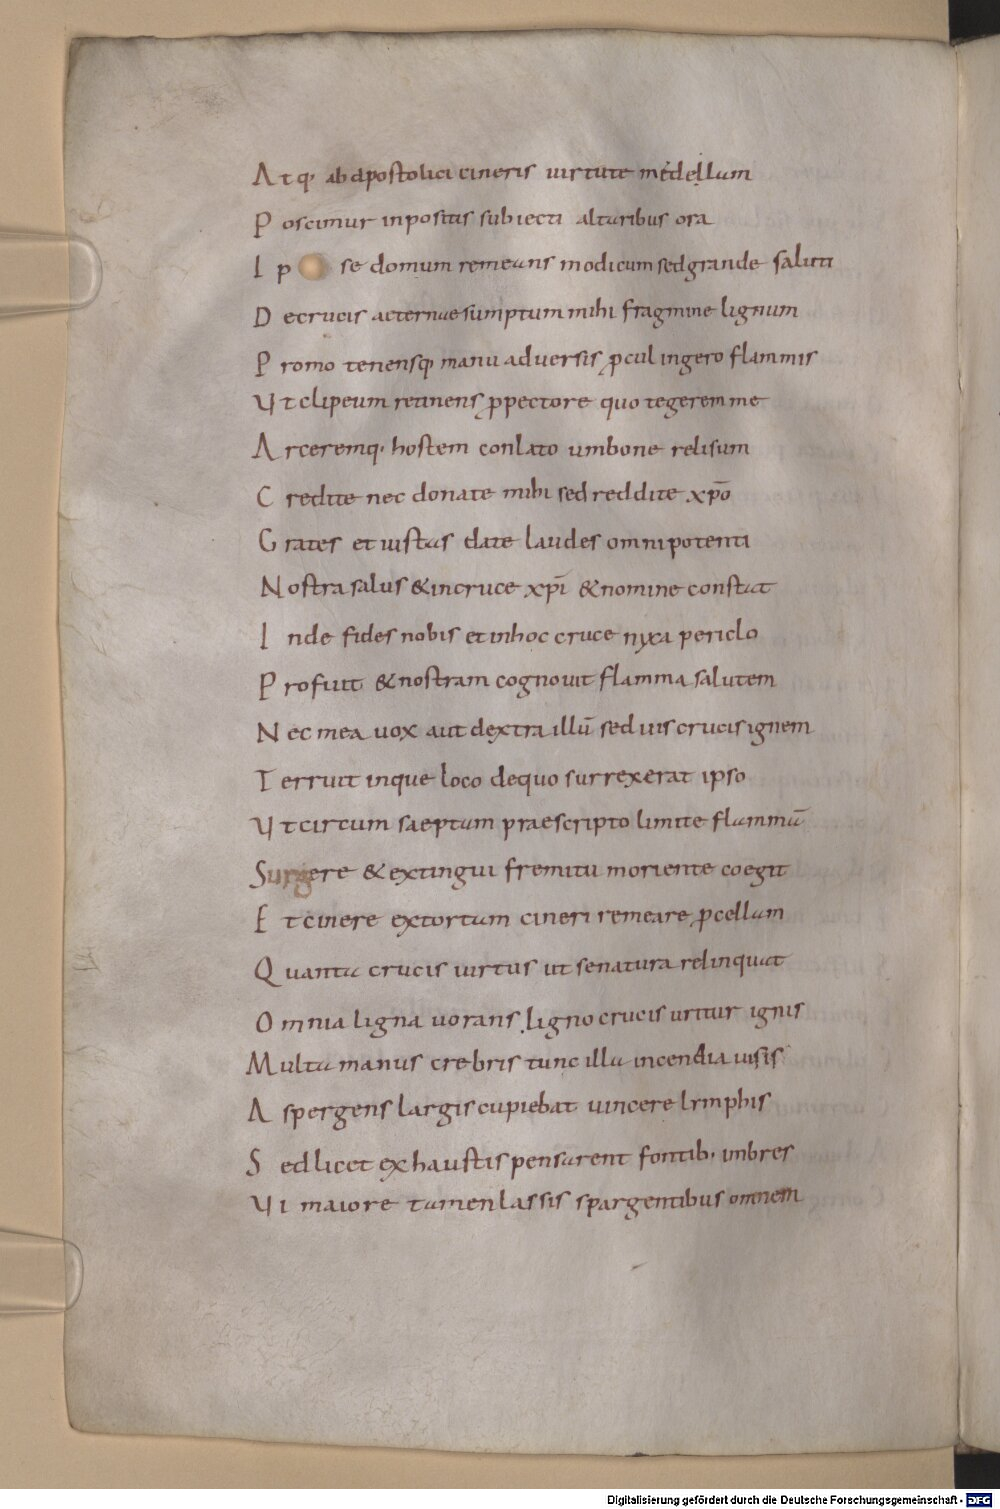 Atq· ab apostolici cineris uirtute medellam
Poscimur inpositis subiecti altaribus ora
Ip se domum remeans modicum sed grande saluti
De crucis aeternae sumptum mihi fragmine lignum
Promo tenensq; manu aduersis ꝓcul ingero flammis
Vt clipeum retinens ꝓ pectore quo tegerem me
Arceremq· hostem conlato umbone relisum
Credite nec donate mihi sed reddite xp̄o
Grates et iustas date laudes omnipotenti
Nostra salus & in cruce xp̄i & nomine constat
Inde fides nobis et in hoc cruce nyxa periclo
Profuit & nostram cognouit flamma salutem
Nec mea uox aut dextra illū sed uis crucis ignem
Terruit inque loco de quo surrexerat ipso
Vt circum saeptam praescripto limite flammā
Surgere & extingui fremitu moriente coegit
Et cinere extortam cineri remeare ꝓcellam
Quanta crucis uirtus ut se natura relinquat
Omnia ligna uorans ligno crucis uritur ignis
Multa manus crebris tunc illa incendia uisis
Aspergens largis cupiebat uincere lymphis
Sed licet exhaustis pensarent fontib· imbres
Vi maiore tamen lassis spargentibus omnem
Digitalisierung gefördert durch die Deutsche Forschungsgemeinschaft - DFG